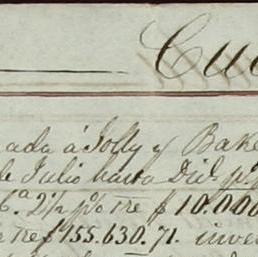 Cue
ada á Jolly y Bake
de Julio hasta Dic. p.
6.ª 2½ p% sre $ 10.000
e tre $ 155.630.71. inver